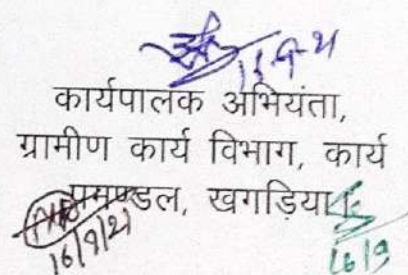 15.9.21
कार्यपालक अभियंता,
ग्रामीण कार्य विभाग, कार्य
प्रमण्डल, खगड़िया।
16/9/21
16/9